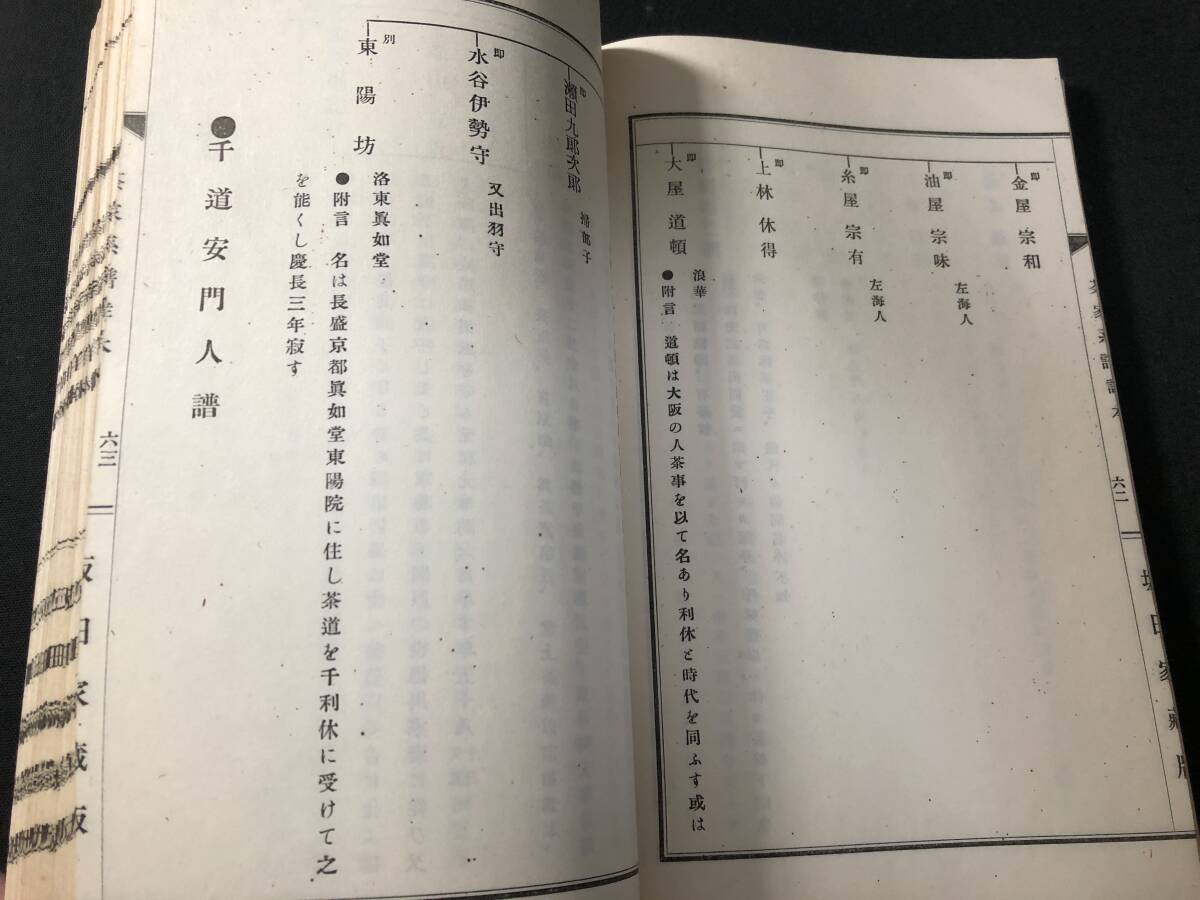 即
金屋宗和
即
油屋宗味
左海人
即
糸屋宗有
左海人
即
上林休得
即
大屋道頓
浪華
●附言 道頓は大阪の人茶事を以て名あり利休と時代を同ふす或は
六二
堀田家蔵版
即
瀬田九郎次郎 掃部子
即
水谷伊勢守 又出羽守
別
東陽坊
洛東眞如堂
●附言 名は長盛京都眞如堂東陽院に住し茶道を千利休に受けて之
を能くし慶長三年寂す
●千道安門人譜
六三